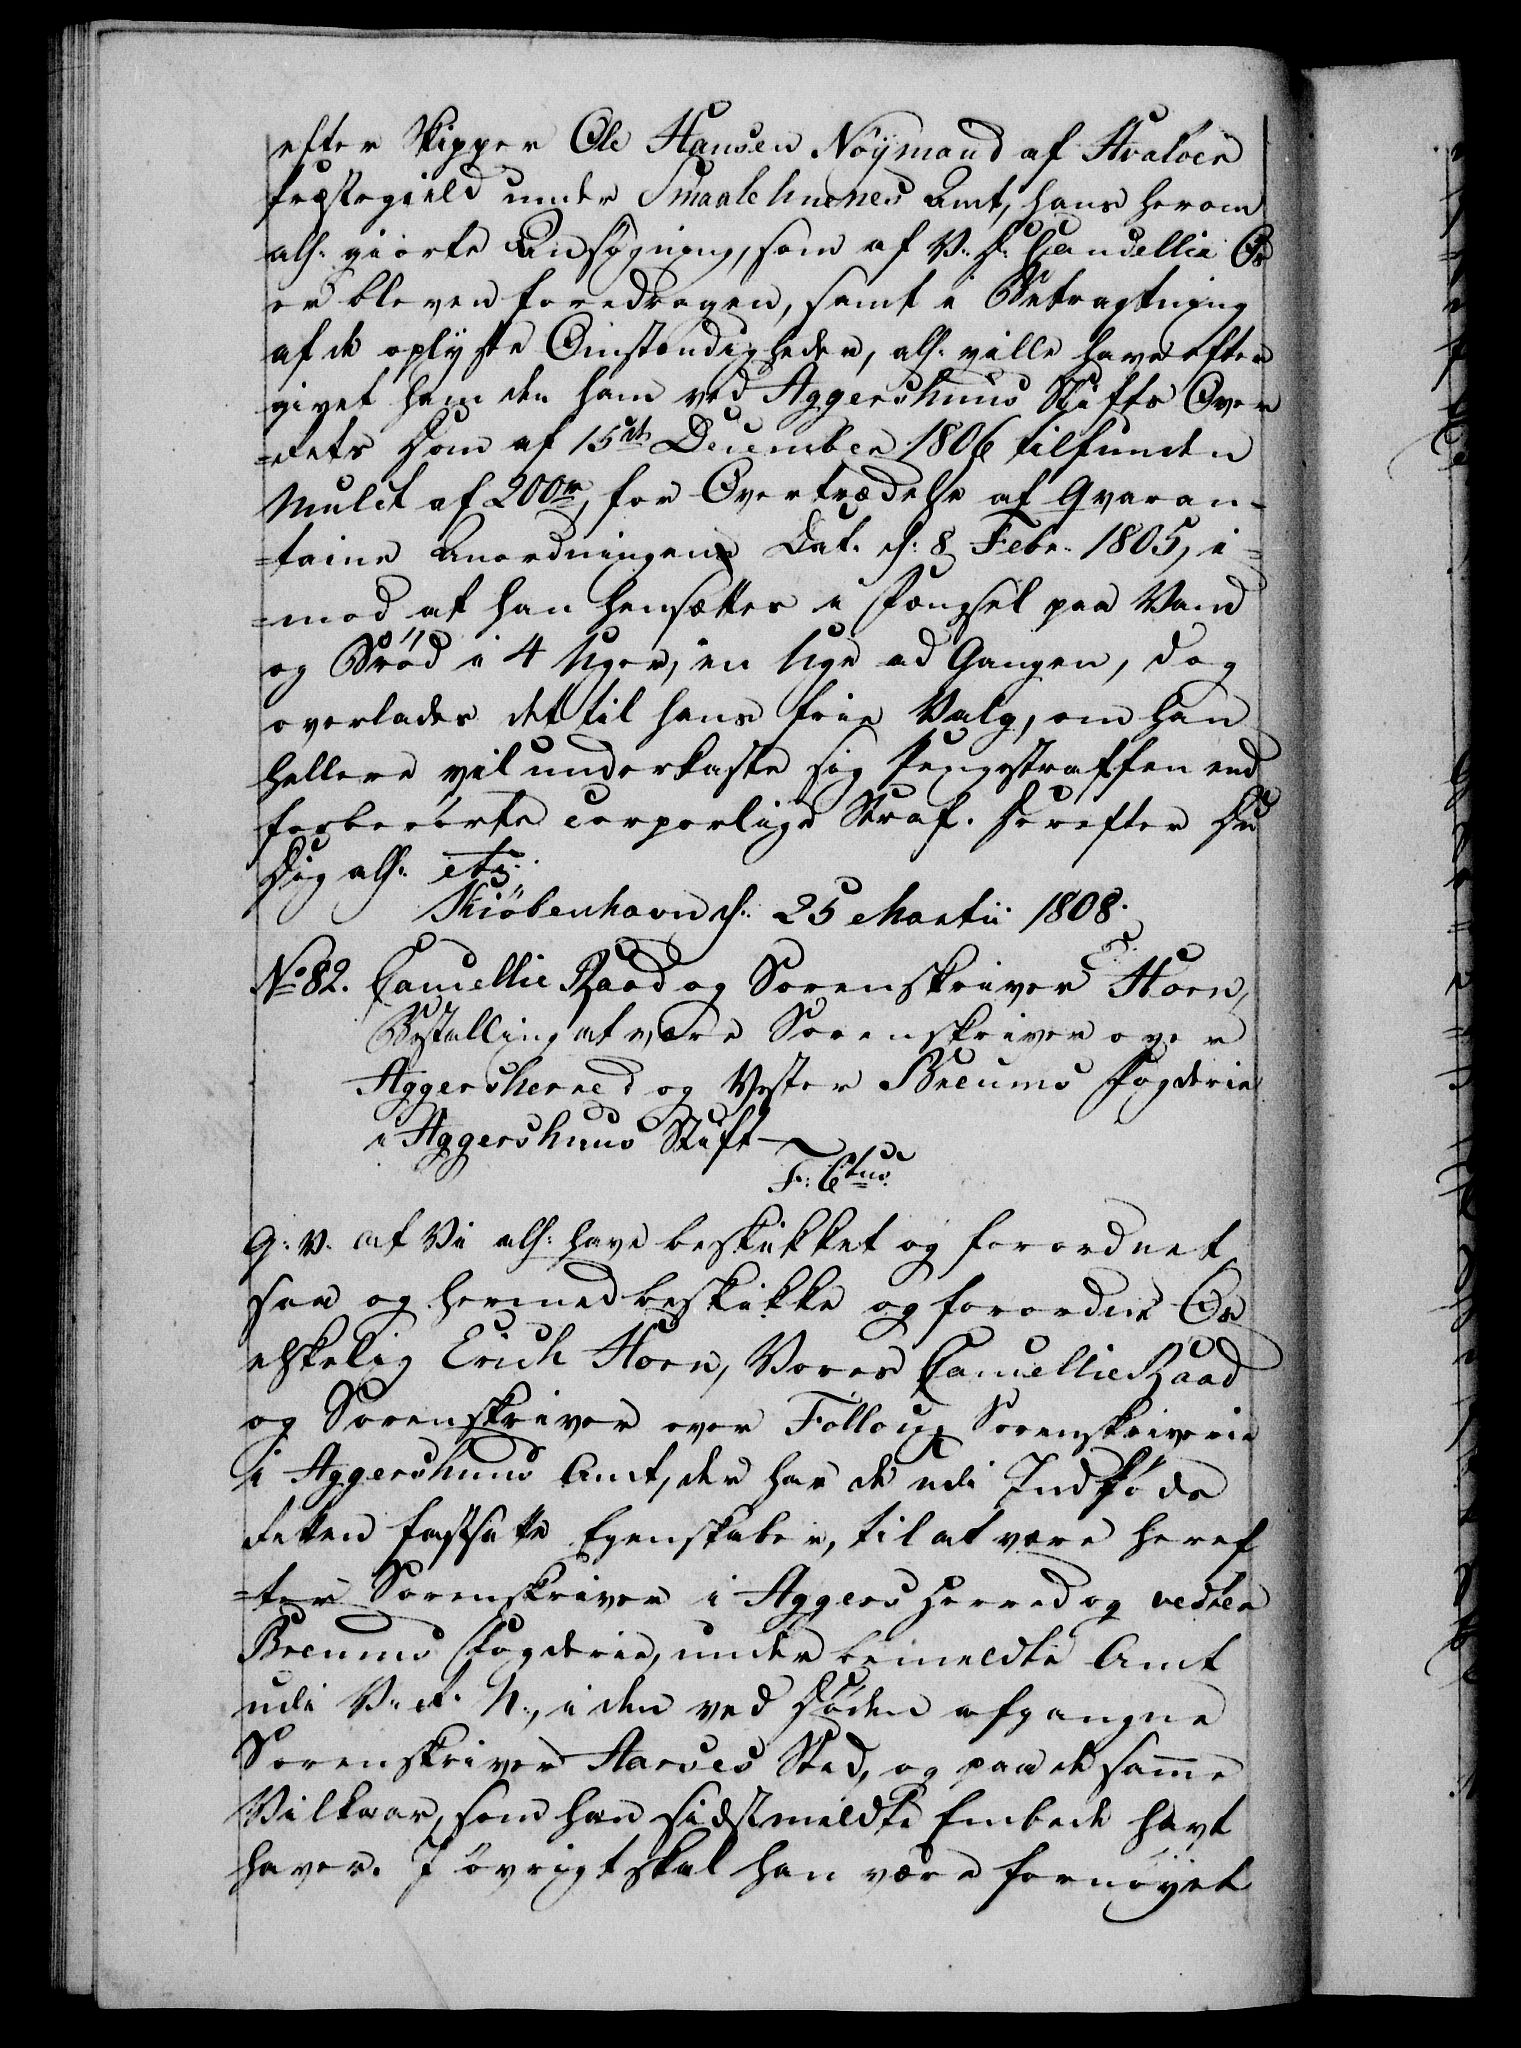 efter Skipper Ole Hansen Nöymand af Hvaloer
Præstegield under Smaalehnenes Amt, hans herom
all: giorte Ansøgning, som af V: D: Cancellie Os
er bleven foredragen, samt i Betragtning
af de oplyste Omstændigheder, all: ville have efter
givet ham den ham ved Aggershuus Stifts Over
=rets Dom af 15de December 1806 tilfunden
Mulct af 200rd, for Overtrædelse af Qvaran-
=taine Anordningen Dat. d: 8 Febr. 1805, i=
=mod at han hensættes i Fængsel paa Vand
og Brød i 4 Uger, en Uge ad Gangen, dog
overlades det til hans frie Valg, om han
hellere vil underkaste sig Pengestraffen end
forberörte corporlige Straf. Herefter Du
Dig all: etc:
Kiöbenhavn d: 25 Martii 1808.
No 82. Cancellie Raad og Sorenskriver E: Horn,
Bestalling at være Sorenskriver over
Aggersherred og Vester Breums Fogderie
i Aggershuus Stift
F: 6tus
G: V: at Vi all: have beskikket og forordnet,
saa og hermed beskikke og forordne Os
elskelig Erich Horn, Vores CancellieRaad
og Sorenskriver over Folloug Sorenskriverie
i Aggershuus Amt, der har de udi Indföds
Retten fastsatte Egenskaber, til at være heref
=ter Sorenskriver i Aggers Herred og vester
Breums Fogderie, under bemeldte Amt
udi V: R: N:, i den ved Døden afgangne
Sorenskriver Aarses Sted, og paa de samme
Vilkaar, som han sidstmeldte Embede havt
haver. I övrigt skal han være fornöyet